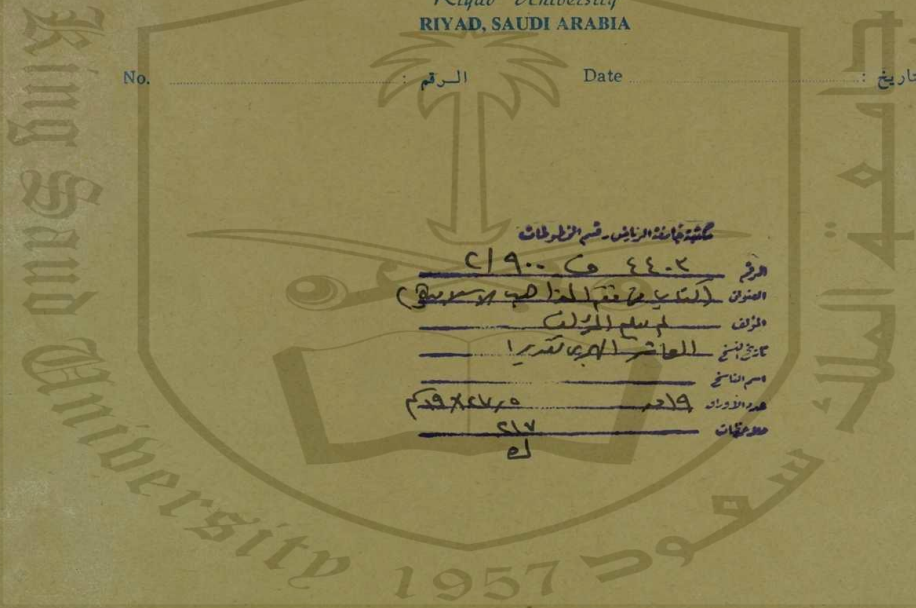 Riyad University
RIYAD, SAUDI ARABIA
No. الرقم : Date : تاريخ
مكتبة جامعة الرياض - قسم المخطوطات
الرقم ٤٤٠٢ ف ٩٠٠ / ٢
العنوان (كتاب في فقه المذاهب الإسلامية)
المؤلف لم يعلم المؤلف
تاريخ النسخ العاشر الهجري تقديرا
اسم الناسخ
عدد الأوراق ١٩ × ٢٧٫٥ سم
ملاحظات ٢١٧
King Saud University
1957
جامعة الملك سعود